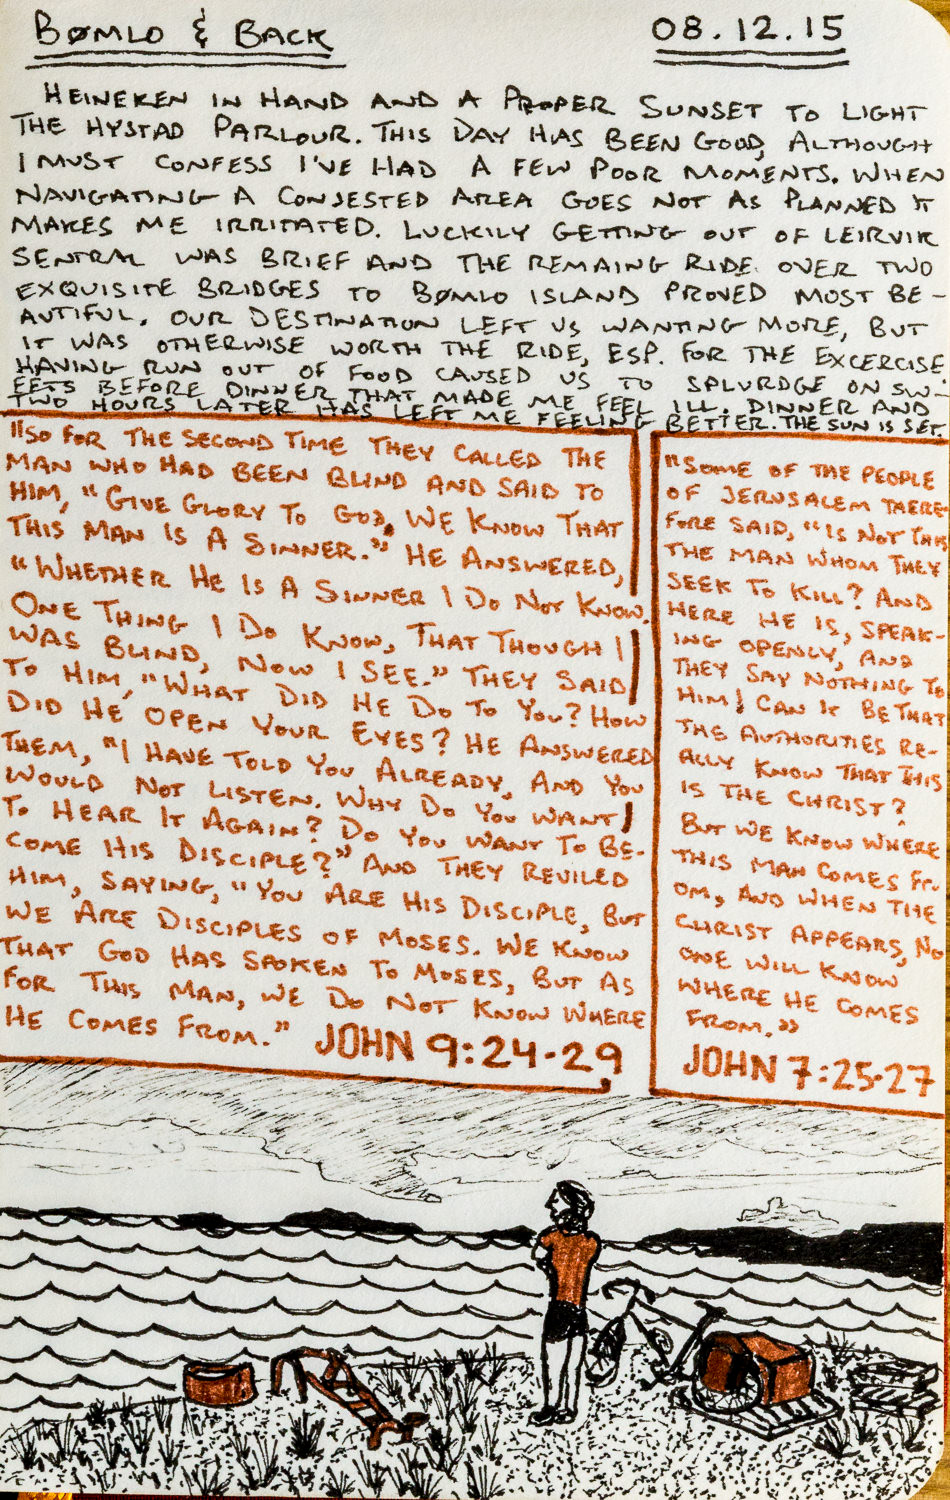 BØMLO & BACK
08.12.15
HEINEKEN IN HAND AND A PROPER SUNSET TO LIGHT
THE HYSTAD PARLOUR. THIS DAY HAS BEEN GOOD, ALTHOUGH
I MUST CONFESS I'VE HAD A FEW POOR MOMENTS. WHEN
NAVIGATING A CONJESTED AREA GOES NOT AS PLANNED IT
MAKES ME IRRITATED. LUCKILY GETTING OUT OF LEIRVIK
SENTRAL WAS BRIEF AND THE REMAING RIDE OVER TWO
EXQUISITE BRIDGES TO BØMLO ISLAND PROVED MOST BE-
AUTIFUL. OUR DESTINATION LEFT US WANTING MORE, BUT
IT WAS OTHERWISE WORTH THE RIDE, ESP. FOR THE EXCERCISE
HAVING RUN OUT OF FOOD CAUSED US TO SPLURDGE ON SW-
EETS BEFORE DINNER THAT MADE ME FEEL ILL. DINNER AND
TWO HOURS LATER HAS LEFT ME FEELING BETTER. THE SUN IS SET.
"SO FOR THE SECOND TIME THEY CALLED THE
MAN WHO HAD BEEN BLIND AND SAID TO
HIM, "GIVE GLORY TO GOD, WE KNOW THAT
THIS MAN IS A SINNER." HE ANSWERED,
"WHETHER HE IS A SINNER I DO NOT KNOW.
ONE THING I DO KNOW, THAT THOUGH I
WAS BLIND, NOW I SEE." THEY SAID
TO HIM, "WHAT DID HE DO TO YOU? HOW
DID HE OPEN YOUR EYES? HE ANSWERED
THEM, "I HAVE TOLD YOU ALREADY, AND YOU
WOULD NOT LISTEN. WHY DO YOU WANT
TO HEAR IT AGAIN? DO YOU WANT TO BE-
COME HIS DISCIPLE?" AND THEY REVILED
HIM, SAYING, "YOU ARE HIS DISCIPLE, BUT
WE ARE DISCIPLES OF MOSES. WE KNOW
THAT GOD HAS SPOKEN TO MOSES, BUT AS
FOR THIS MAN, WE DO NOT KNOW WHERE
HE COMES FROM." JOHN 9:24-29
"SOME OF THE PEOPLE
OF JERUSALEM THERE-
FORE SAID, "IS NOT THIS
THE MAN WHOM THEY
SEEK TO KILL? AND
HERE HE IS, SPEAK-
ING OPENLY, AND
THEY SAY NOTHING TO
HIM! CAN IT BE THAT
THE AUTHORITIES RE-
ALLY KNOW THAT THIS
IS THE CHRIST?
BUT WE KNOW WHERE
THIS MAN COMES FR-
OM, AND WHEN THE
CHRIST APPEARS, NO
ONE WILL KNOW
WHERE HE COMES
FROM."
JOHN 7:25-27